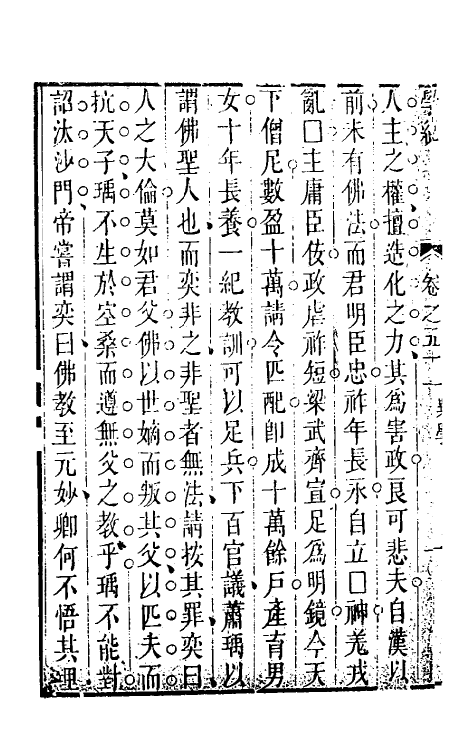 人主之權擅造化之力其爲害政良可悲夫自漢以
前未有佛法而君明臣忠祚年長永自立□神羌戎
亂□主庸臣佞政虐祚短梁武齊宣足爲明鏡今天
下僧尼數盈十萬請令匹配卽成十萬餘戶產育男
女十年長養一紀教訓可以足兵下百官議蕭瑀以
謂佛聖人也而奕非之非聖者無法請按其罪奕曰
人之大倫莫如君父佛以世嫡而叛其父以匹夫而
抗天子瑀不生於空桑而遵無父之教乎瑀不能對
詔汰沙門帝嘗謂奕曰佛教至元妙卿何不悟其理
卷之五十一